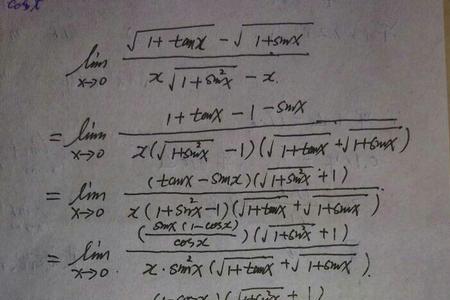 cosx
lim x→0 (√(1+tanx) - √(1+sinx)) / (x√(1+sin²x) - x)
= lim x→0 (1+tanx-1-sinx) / (x(√(1+sin²x) -1)(√(1+tanx) +√(1+sinx)))
= lim x→0 ((tanx-sinx)(√(1+sin²x) +1)) / (x(1+sin²x-1)(√(1+tanx) +√(1+sinx)))
= lim x→0 ((sinx(1-cosx)/cosx)(√(1+sin²x) +1)) / (x·sin²x(√(1+tanx) +√(1+sinx)))
(1-cosx)(√(1+sin²x) +1)